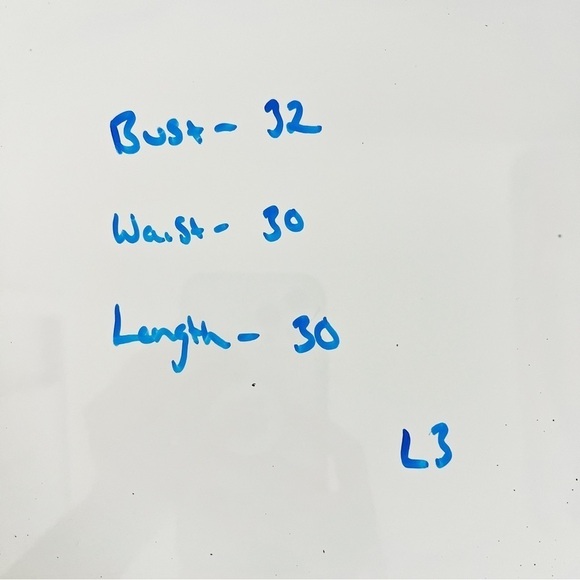 Bust - 32
Waist - 30
Length - 30
L3